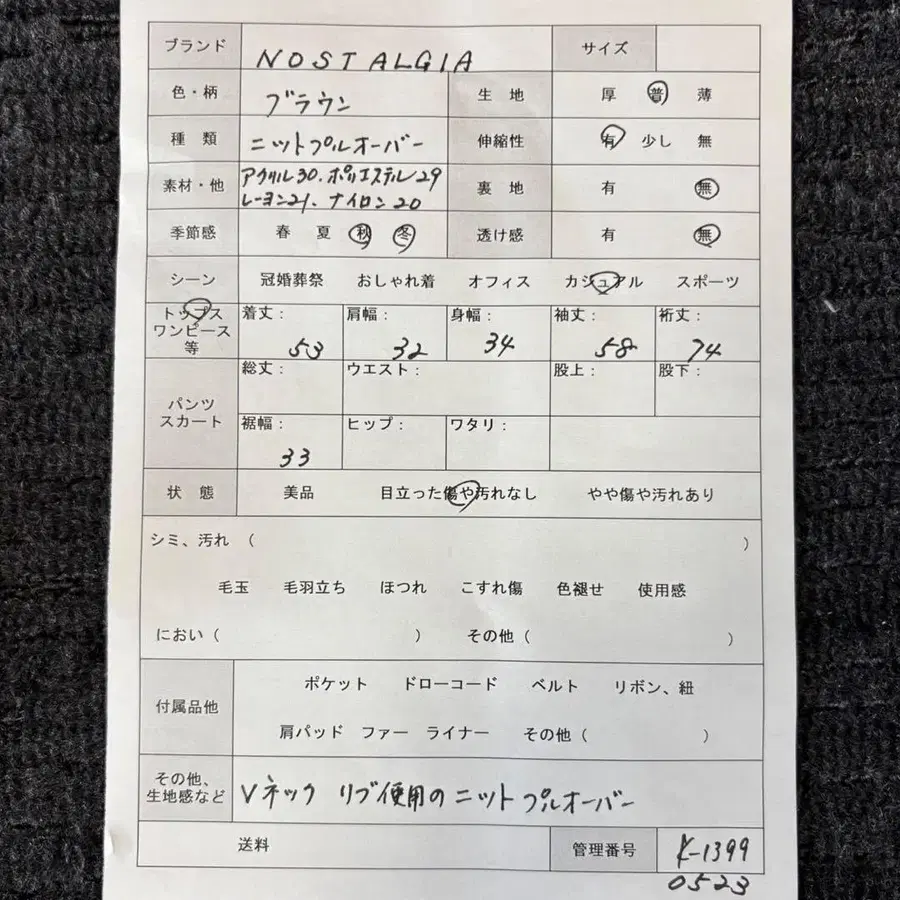 ブランド NOSTALGIA サイズ
色・柄 ブラウン 生地 厚 普 薄
種類 ニットプルオーバー 伸縮性 有 少し 無
素材・他 アクリル30.ポリエステル29
レーヨン21.ナイロン20 裏地 有 無
季節感 春 夏 秋 冬 透け感 有 無
シーン 冠婚葬祭 おしゃれ着 オフィス カジュアル スポーツ
トップス
ワンピース
等
着丈: 53 肩幅: 32 身幅: 34 袖丈: 58 裄丈: 74
パンツ
スカート
総丈: ウエスト: 股上: 股下:
裾幅: 33 ヒップ: ワタリ:
状態 美品 目立った傷や汚れなし やや傷や汚れあり
シミ、汚れ ( )
毛玉 毛羽立ち ほつれ こすれ傷 色褪せ 使用感
におい( ) その他( )
付属品他 ポケット ドローコード ベルト リボン、紐
肩パッド ファー ライナー その他( )
その他、
生地感など Vネック リブ使用のニットプルオーバー
送料 管理番号 K-1399
0523